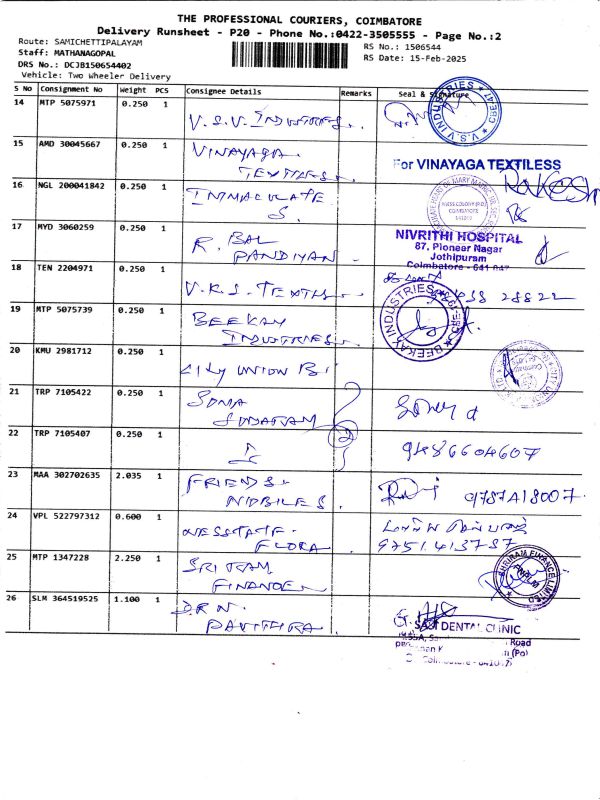 THE PROFESSIONAL COURIERS, COIMBATORE
Delivery Runsheet - P20 - Phone No.:0422-3505555 - Page No.:2
Route: SAMICHETTIPALAYAM
Staff: MATHANAGOPAL
DRS No.: DCJB150654402
Vehicle: Two Wheeler Delivery
RS No.: 1506544
RS Date: 15-Feb-2025
S No Consignment No Weight PCS Consignee Details Remarks Seal & Signature
14 MTP 5075971 0.250 1
V.S.V. INDUSTRIES.
V.S.V. INDUSTRIES
15 AMD 30045667 0.250 1
VINAYAGA
TEXTILES.
For VINAYAGA TEXTILESS
Rakesh
16 NGL 200041842 0.250 1
IMMACULATE
S.
COIMBATORE
17 MYD 3060259 0.250 1
R. BAL
PANDIYAN
NIVRITHI HOSPITAL
87, Pioneer Nagar
Jothipuram
Coimbatore - 641 047
18 TEN 2204971 0.250 1
V.R.S. TEXTILES
28822
19 MTP 5075739 0.250 1
BEEKAY
INDUSTRIES.
BEEKAY INDUSTRIES
20 KMU 2981712 0.250 1
CITY UNION B.
21 TRP 7105422 0.250 1
SOMA
SUNDARAM
22 TRP 7105407 0.250 1
2
9486604607
23 MAA 302702635 2.035 1
FRIENDS
MOBILES.
9787418007
24 VPL 522797312 0.600 1
FLORA
9751413737
25 MTP 1347228 2.250 1
SRI RAM
FINANCE
SHRIRAM FINANCE LIMITED
26 SLM 364519525 1.100 1
DR N.
PAVITHRA.
DENTAL CLINIC
Road
(Po)